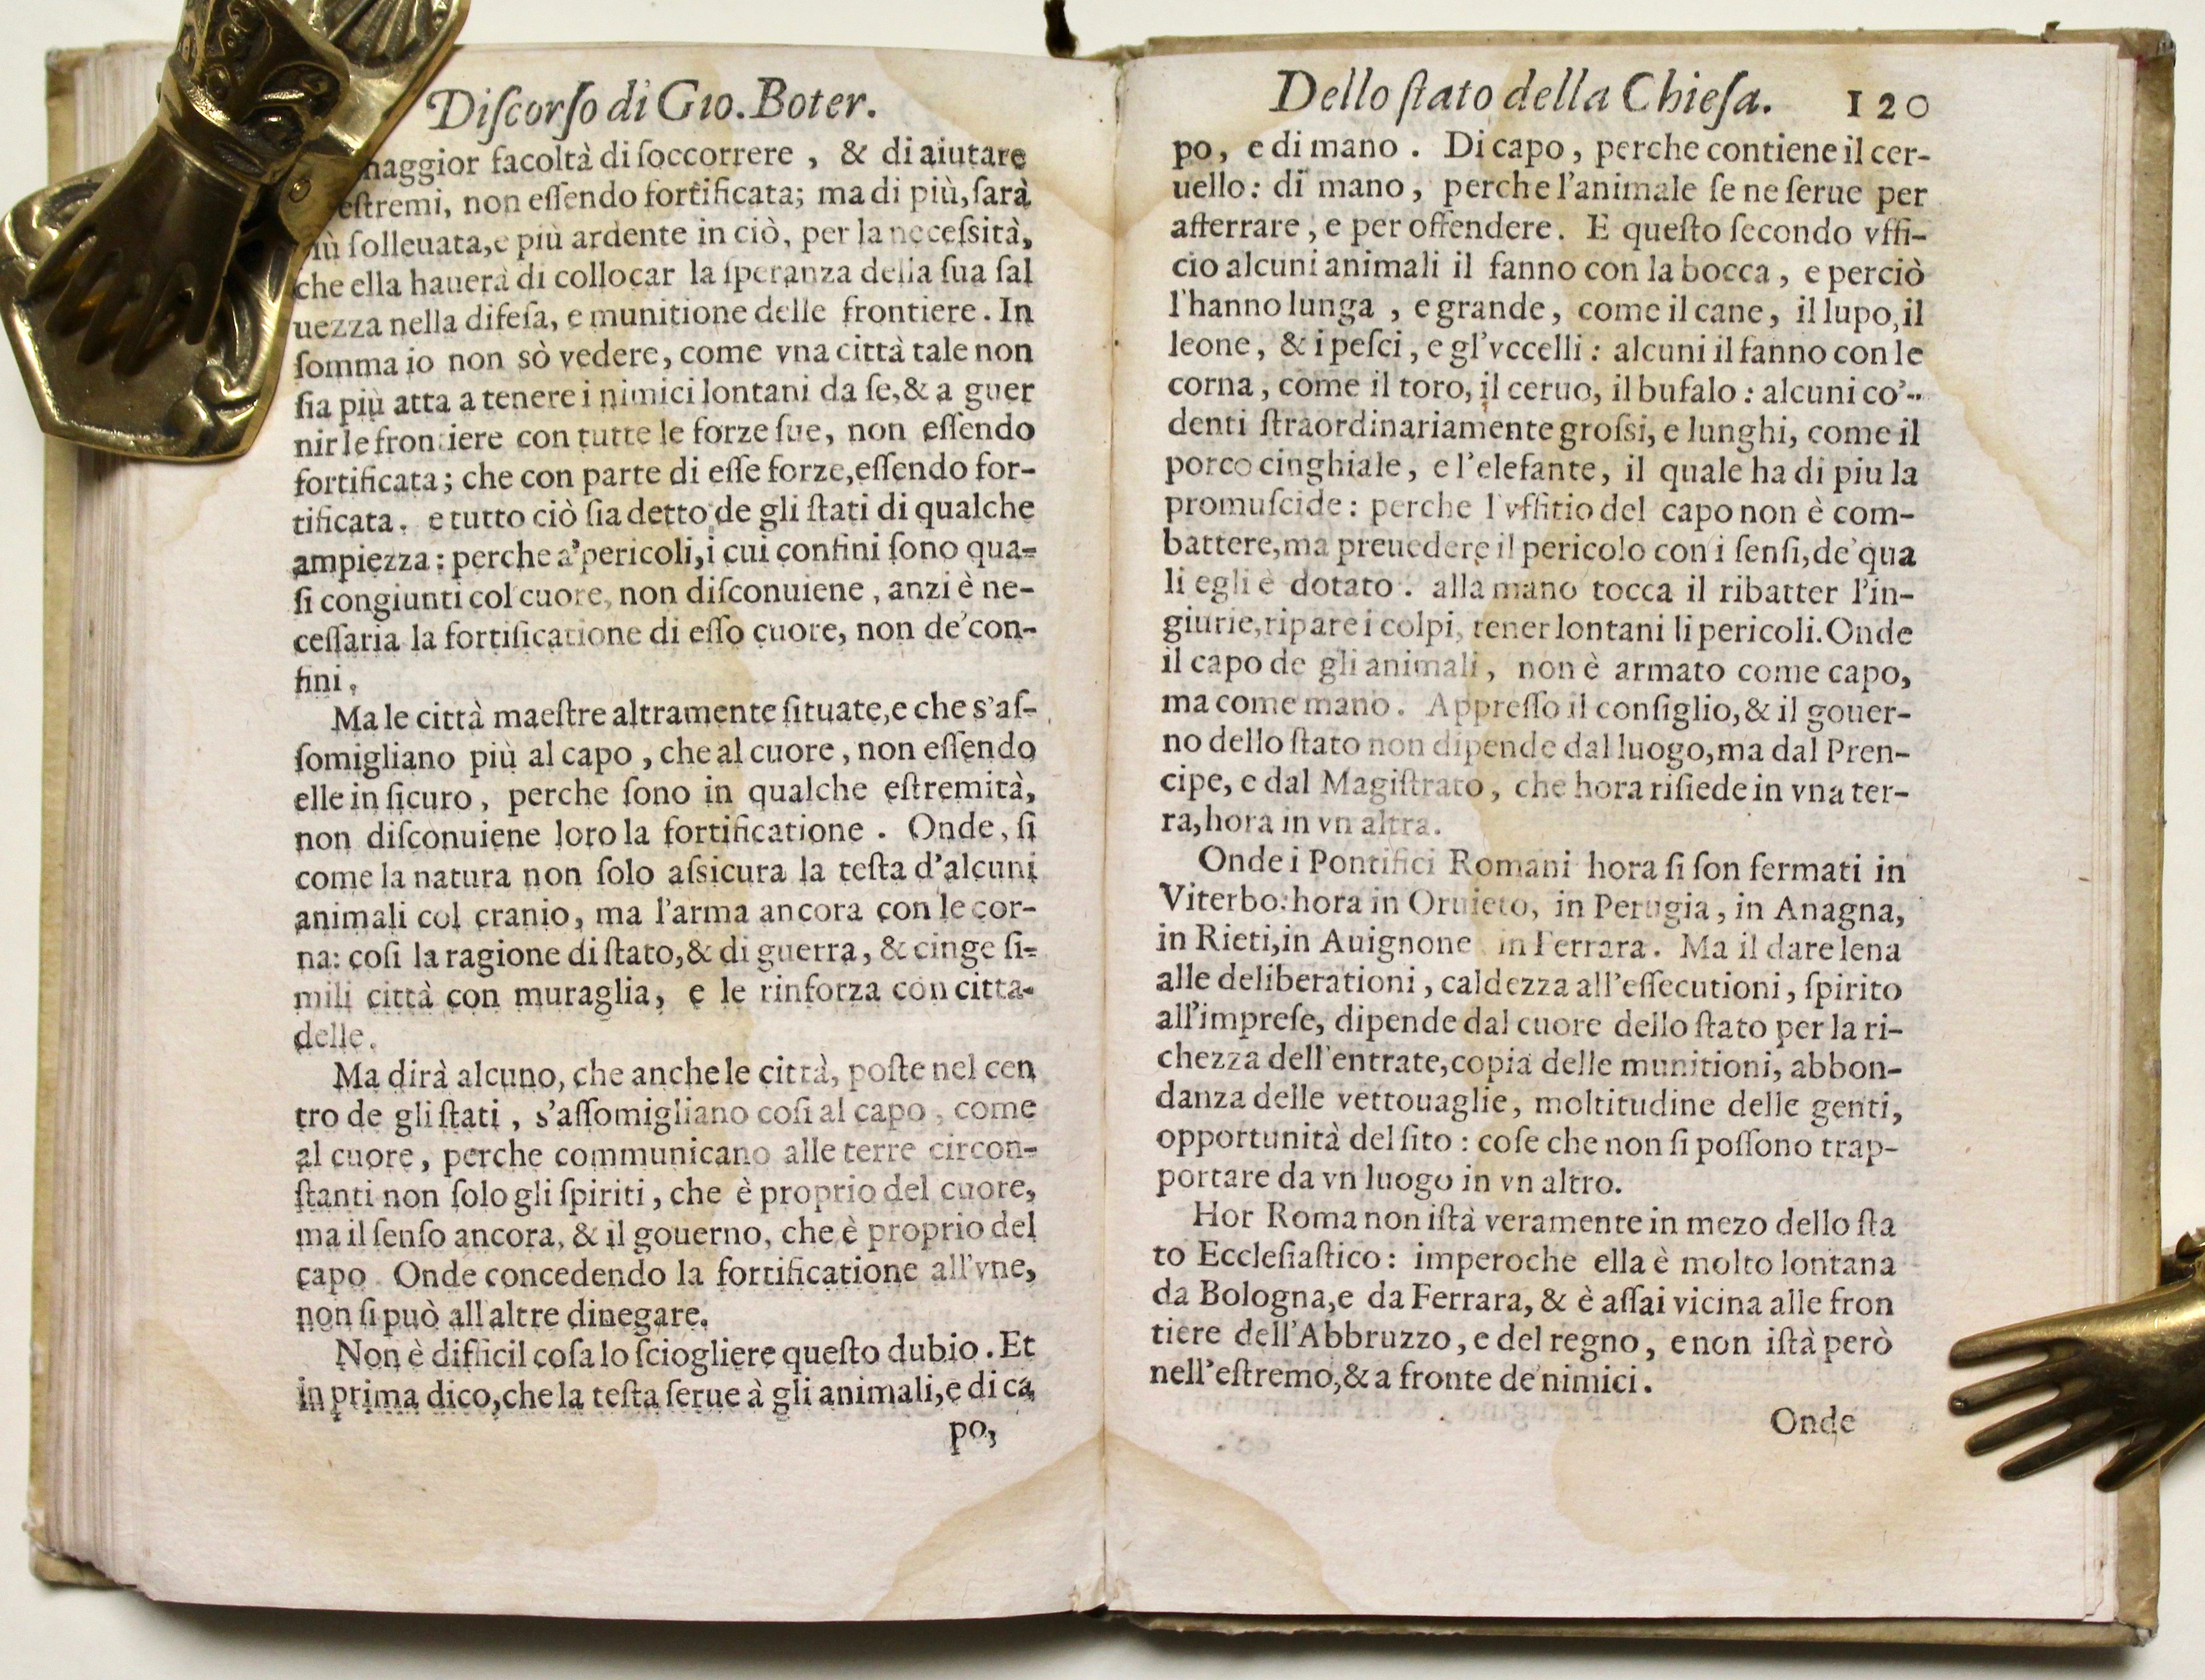 Diſcorſo di Gio. Boter.
maggior facoltà di ſoccorrere, & di aiutare
eſtremi, non eſſendo fortificata; ma di più, ſarà
più ſolleuata, e più ardente in ciò, per la neceſsità,
che ella hauerà di collocar la ſperanza della ſua ſal
uezza nella difeſa, e munitione delle frontiere. In
ſomma io non sò vedere, come vna città tale non
ſia più atta a tenere i nimici lontani da ſe, & a guer
nir le frontiere con tutte le forze ſue, non eſſendo
fortificata; che con parte di eſſe forze, eſſendo for-
tificata. e tutto ciò ſia detto de gli ſtati di qualche
ampiezza: perche a' pericoli, i cui confini ſono qua-
ſi congiunti col cuore, non diſconuiene, anzi è ne-
ceſſaria la fortificatione di eſſo cuore, non de' con-
fini.
Ma le città maeſtre altramente ſituate, e che s'aſ-
ſomigliano più al capo, che al cuore, non eſſendo
elle in ſicuro, perche ſono in qualche eſtremità,
non diſconuiene loro la fortificatione. Onde, ſi
come la natura non ſolo aſsicura la teſta d'alcuni
animali col cranio, ma l'arma ancora con le cor-
na: coſi la ragione di ſtato, & di guerra, & cinge ſi-
mili città con muraglia, e le rinforza con citta-
delle.
Ma dirà alcuno, che anche le città, poſte nel cen
tro de gli ſtati, s'aſſomigliano coſi al capo, come
al cuore, perche communicano alle terre circon-
ſtanti non ſolo gli ſpiriti, che è proprio del cuore,
ma il ſenſo ancora, & il gouerno, che è proprio del
capo. Onde concedendo la fortificatione all'vne,
non ſi può all'altre dinegare.
Non è difficil coſa lo ſciogliere queſto dubio. Et
in prima dico, che la teſta ſerue à gli animali, e di ca
po,
Dello ſtato della Chieſa. 120
po, e di mano. Di capo, perche contiene il cer-
uello: di mano, perche l'animale ſe ne ſerue per
afferrare, e per offendere. E queſto ſecondo vffi-
cio alcuni animali il fanno con la bocca, e perciò
l'hanno lunga, e grande, come il cane, il lupo, il
leone, & i peſci, e gl'vccelli: alcuni il fanno con le
corna, come il toro, il ceruo, il bufalo: alcuni co'-
denti ſtraordinariamente groſsi, e lunghi, come il
porco cinghiale, e l'elefante, il quale ha di piu la
promuſcide: perche l'vffitio del capo non è com-
battere, ma preuedere il pericolo con i ſenſi, de' qua
li egli è dotato. alla mano tocca il ribatter l'in-
giurie, ripare i colpi, tener lontani li pericoli. Onde
il capo de gli animali, non è armato come capo,
ma come mano. Appreſſo il conſiglio, & il gouer-
no dello ſtato non dipende dal luogo, ma dal Pren-
cipe, e dal Magiſtrato, che hora riſiede in vna ter-
ra, hora in vn altra.
Onde i Pontifici Romani hora ſi ſon fermati in
Viterbo: hora in Oruieto, in Perugia, in Anagna,
in Rieti, in Auignone in Ferrara. Ma il dare lena
alle deliberationi, caldezza all'eſſecutioni, ſpirito
all'impreſe, dipende dal cuore dello ſtato per la ri-
chezza dell'entrate, copia delle munitioni, abbon-
danza delle vettouaglie, moltitudine delle genti,
opportunità del ſito: coſe che non ſi poſſono trap-
portare da vn luogo in vn altro.
Hor Roma non iſtà veramente in mezo dello ſta
to Eccleſiaſtico: imperoche ella è molto lontana
da Bologna, e da Ferrara, & è aſſai vicina alle fron
tiere dell'Abbruzzo, e del regno, e non iſtà però
nell'eſtremo, & a fronte de' nimici.
Onde